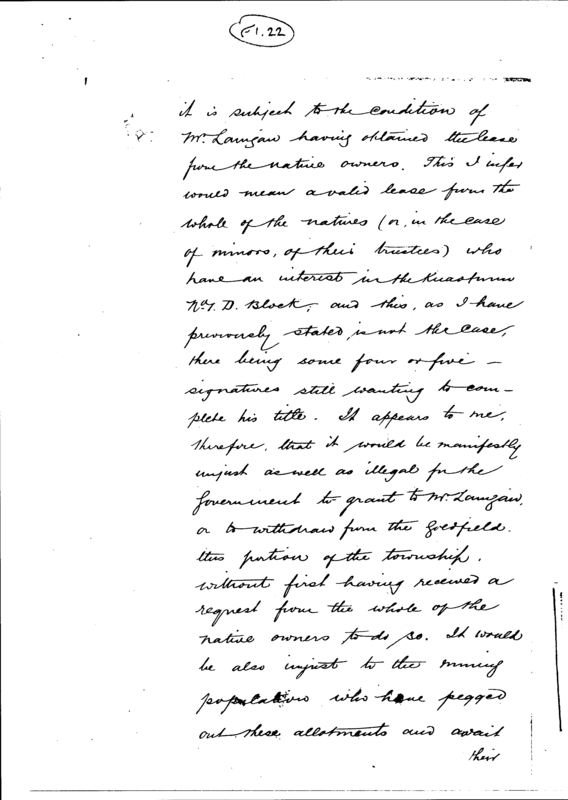 F1.22
it is subject to the condition of
Mr. Lanigan having obtained the lease
from the native owners. This I infer
would mean a valid lease from the
whole of the natives (or, in the case
of minors, of their trustees) who
have an interest in the Kuaotunu
No. 1. D. Block, and this, as I have
previously stated, is not the case,
there being some four or five –
signatures still wanting to com-
plete his title. It appears to me,
therefore, that it would be manifestly
unjust as well as illegal for the
Government to grant to Mr. Lanigan,
or to withdraw from the Goldfield
this portion of the township,
without first having received a
request from the whole of the
native owners to do so. It would
be also unjust to the mining
population who have pegged
out these allotments and await
their